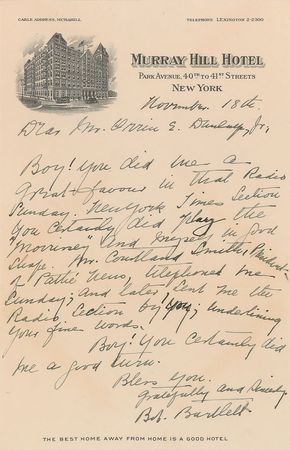 CABLE ADDRESS, MURAHILL
TELEPHONE LEXINGTON 2-2300
MURRAY HILL HOTEL
PARK AVENUE, 40TH TO 41ST STREETS
NEW YORK
November 18th.
Dear Mr. Orrin E. Dunlap, Jr,
Boy! you did me a
Great favour in that Radio
Sunday. New York Times Section
You Certainly did Play the
Morrissey And myself in good
shape. Mr. Courtland Smith, President
of Pathé News, telephoned me
Sunday; And later sent me the
Radio Section by you; underlining
your fine words.
Boy! You Certainly did
me a good turn.
Bless you.
Gratefully and Sincerely
Bob. Bartlett.
THE BEST HOME AWAY FROM HOME IS A GOOD HOTEL